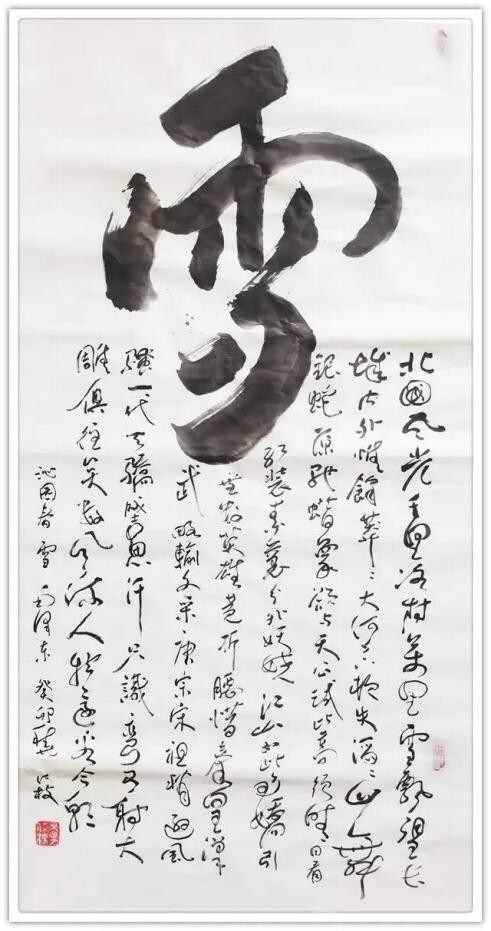 雪
北国风光千里冰封万里雪飘望长
城内外惟余莽々大河上下顿失滔々山舞
银蛇原驰蜡象欲与天公试比高须晴日看
红装素裹分外妖娆江山如此多娇引
无数英雄竞折腰惜秦皇汉
武略输文采唐宗宋祖稍逊风
骚一代天骄成思汗只识弯弓射大
雕俱往矣数风流人物还看今朝
沁园春雪毛泽东癸卯